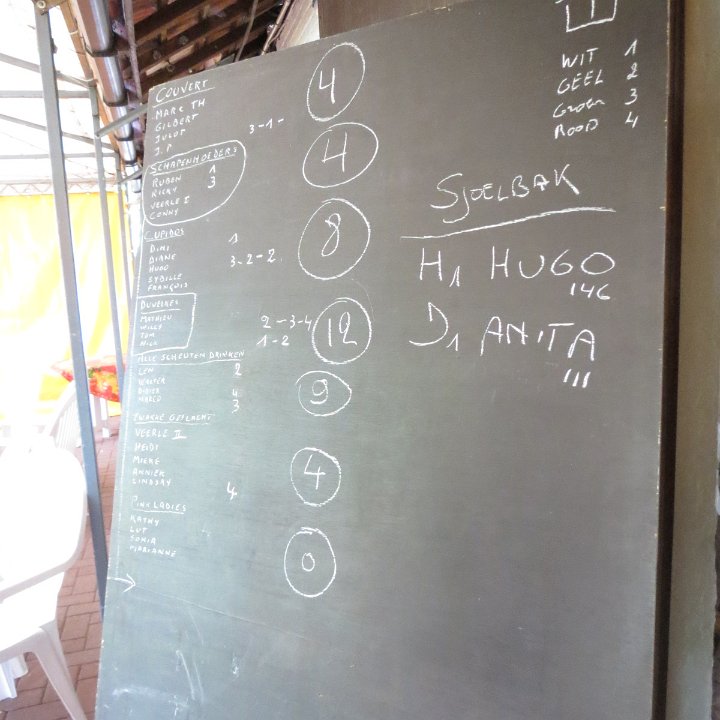 COUVERT
MARC TH
GILBERT
JULOT
J.P
3-1-
4
SCHAPENHOEDERS
RUBEN 1
RICKY 3
VEERLE I
CONNY
4
CUPIDOS
DIMI 1
DIANE
HUGO 3-2-2
SYBILLE
FRANÇOIS
8
DUVELKES
MATHIEU 2-3-4
WILLY 1-2
TOM
NICK
12
ALLE SCHEUTEN DRINKEN
LEN 2
WALTER
DIDIER 4
MARCO 3
9
ZWAKKE GESLACHT
VEERLE II
HEIDI
MIEKE
ANNIEK
LINDSAY
4
4
PINK LADIES
KATHY
LUT
SONIA
MARIANNE
0
WIT 1
GEEL 2
GROEN 3
ROOD 4
SJOELBAK
H1 HUGO
146
D1 ANITA
111